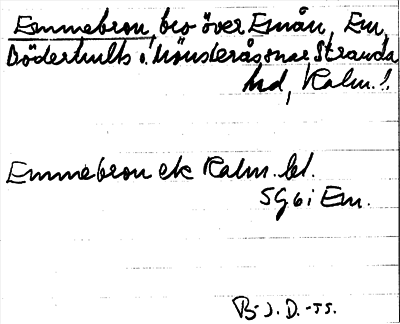 Emmebron, bro över Emån, Em,
Döderhults o. Mönsterås snar Stranda
hd, Kalm. l.
Emmebron ek Kalm. bl.
5G6i Em.
B-J.D.-55.